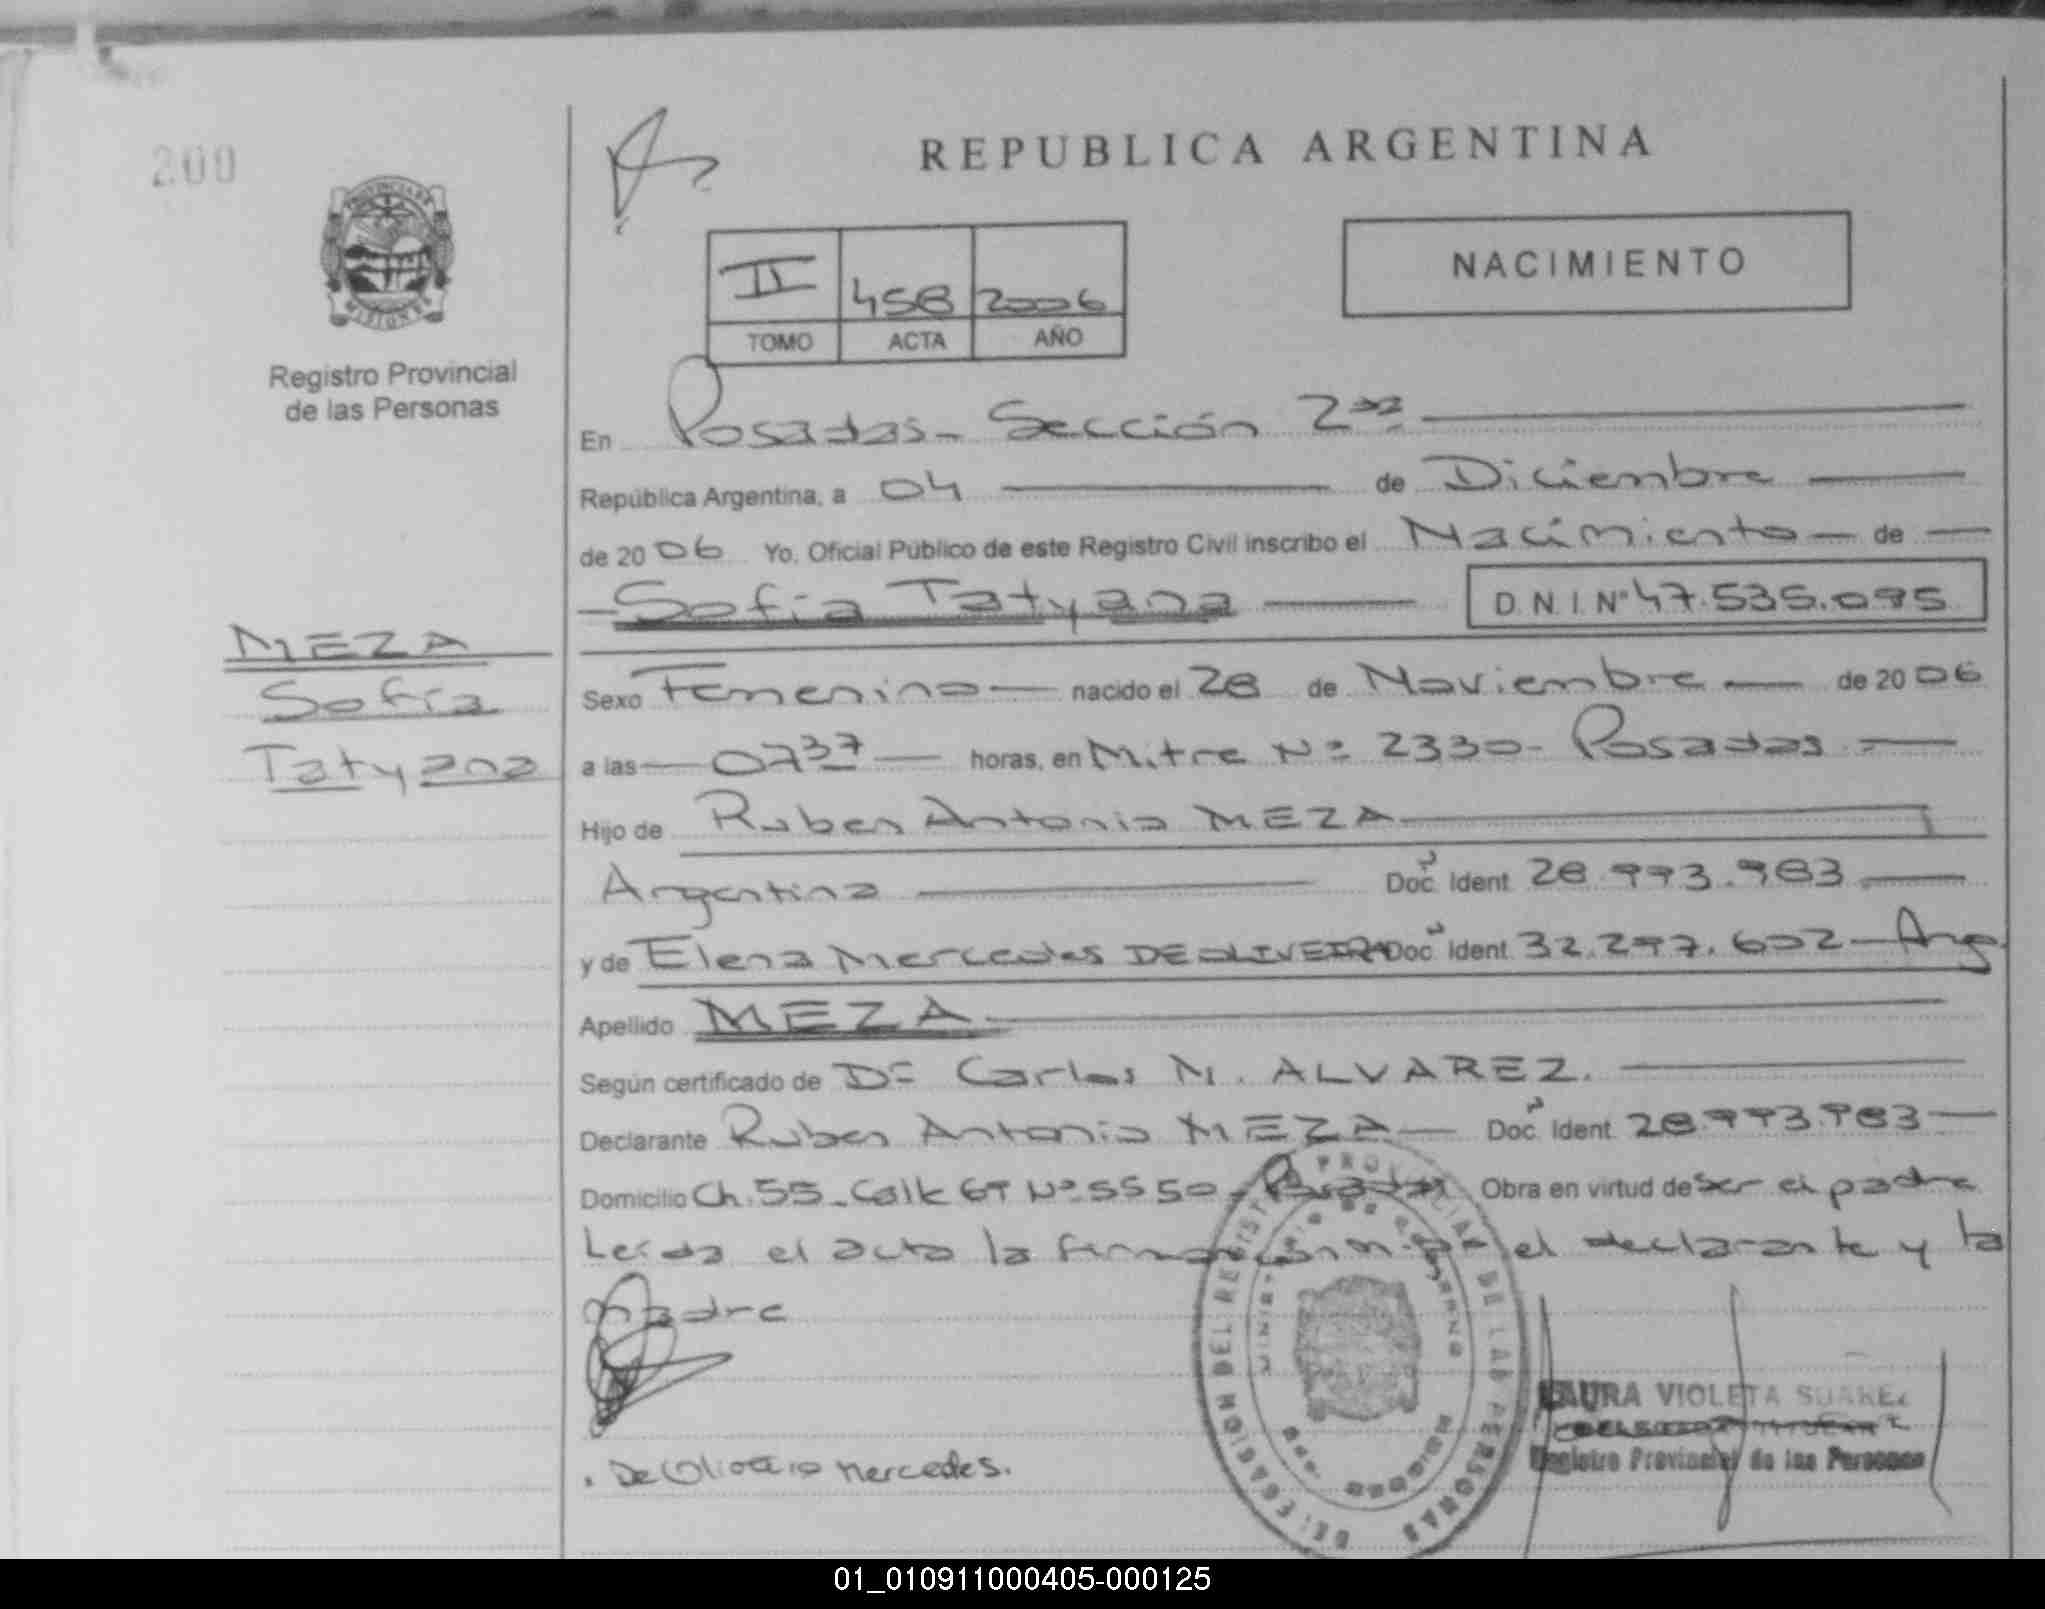 200
REPUBLICA ARGENTINA
PROVINCIA DE
MISIONES
Registro Provincial
de las Personas
NACIMIENTO
II 458 2006
TOMO ACTA AÑO
En Posadas- Sección 2da
República Argentina, a 04 de Diciembre
de 2006 Yo, Oficial Público de este Registro Civil inscribo el Nacimiento de
Sofía Tatyana D.N.I. Nº 47.535.095
MEZA
Sofía
Tatyana
Sexo Femenino nacido el 28 de Noviembre de 2006
a las 07 37 horas, en Mitre Nº 2330- Posadas
Hijo de Ruben Antonio MEZA
Argentina Doc. Ident. 28.993.983
y de Elena Mercedes DE OLIVEIRA Doc. Ident. 32.297.602- Arg.
Apellido MEZA
Según certificado de Dr Carlos M. ALVAREZ.
Declarante Ruben Antonio MEZA Doc. Ident. 28.993.983
Domicilio Ch. 55- Calle 69 Nº 5550- Posadas Obra en virtud de ser el padre
Leída el acta la firman el declarante y la
Madre
DELEGACION DEL REGISTRO PROVINCIAL DE LAS PERSONAS
LAURA VIOLETA SUAREZ
Registro Provincial de las Personas
. De Oliveira Mercedes.
01_010911000405-000125